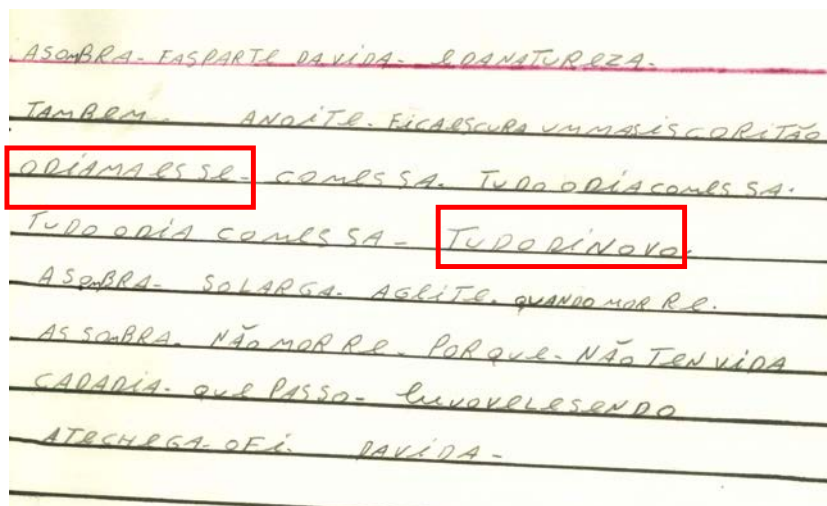 ASOMBRA- FASPARTE DAVIDA- EDANATUREZA.
TAMBEM- ANOITE. FICAESCURA UMMASISCORITÃO
ODIAMAESSE- COMESSA. TUDOODIACOMESSA.
TUDOODIA COMESSA- TUDODINOVO.
ASOMBRA- SOLARGA. AGEITE. QUANDO MORRE.
ASSOMBRA. NÃOMORRE. PORQUE- NÃOTENVIDA
CADADIA- QUE PASSO- ENVOVELESENDO
ATECHEGA- OFI. DAVIDA-